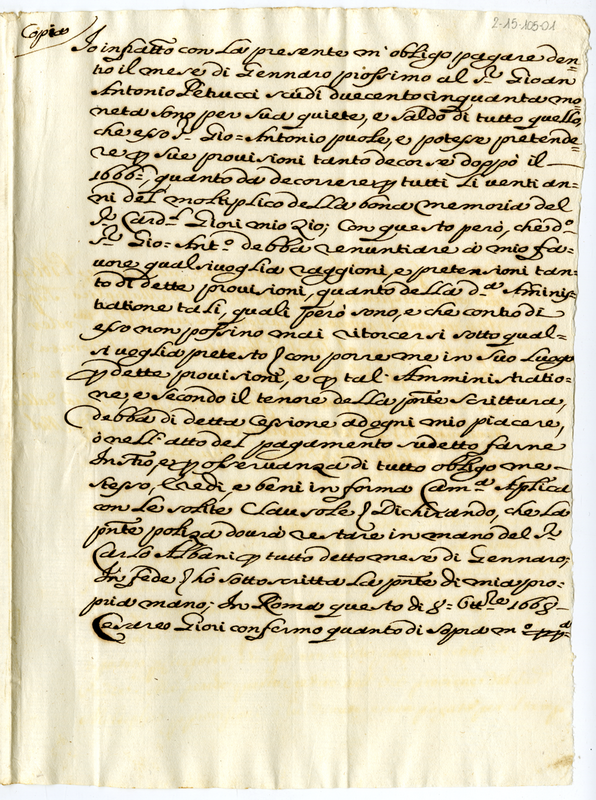 2-15-105-01
Copia
Io infratto con la presente m'obligo pagare den=
tro il mese di Gennaro prossimo al Sr. Gioan
Antonio Petucci scudi duecento cinquanta mo=
neta sono per sua quiete, e saldo di tutto quello,
che esso Sr. Gio= Antonio puole, e potesse pretende=
re p sue provisioni tanto decorse doppo il
1666=, quanto da decorrere p tutti li venti an=
ni del moltiplico della bona memoria del
Sr. Card.l Giori mio zio; Con questo però, che do.
Sr. Gio= Anto. debba renuntiare à mio fa=
vore qualsivoglia raggioni, e pretensioni tan=
to di dette provisioni, quanto della da. Aminis=
tratione tali, quali però sono, e che contro di
esso non possino mai ritorcersi sotto qual=
si voglia pretesto con porre me in suo luogo
p dette provisioni, e p tal' Amministratio=
ne, e secondo il tenore della pnte scrittura,
debba di detta Cessione ad ogni mio piacere,
ò nell' atto del pagamento sudetto farne
Instro, e p osservanza di tutto obligo me=
stesso, Eredi, e beni in forma Cama. Aplica
con le solite Clausole Dichirando, che la
pnte poliza dourà restare in mano del Sr.
Carlo Albani p tutto detto mese di Gennaro;
In fede ho sottoscritta la pnte di mia pro=
pria mano; In Roma questo di 8= Ottre 1668=
Cesareo Giori confermo quanto di sopra mo. ppa.